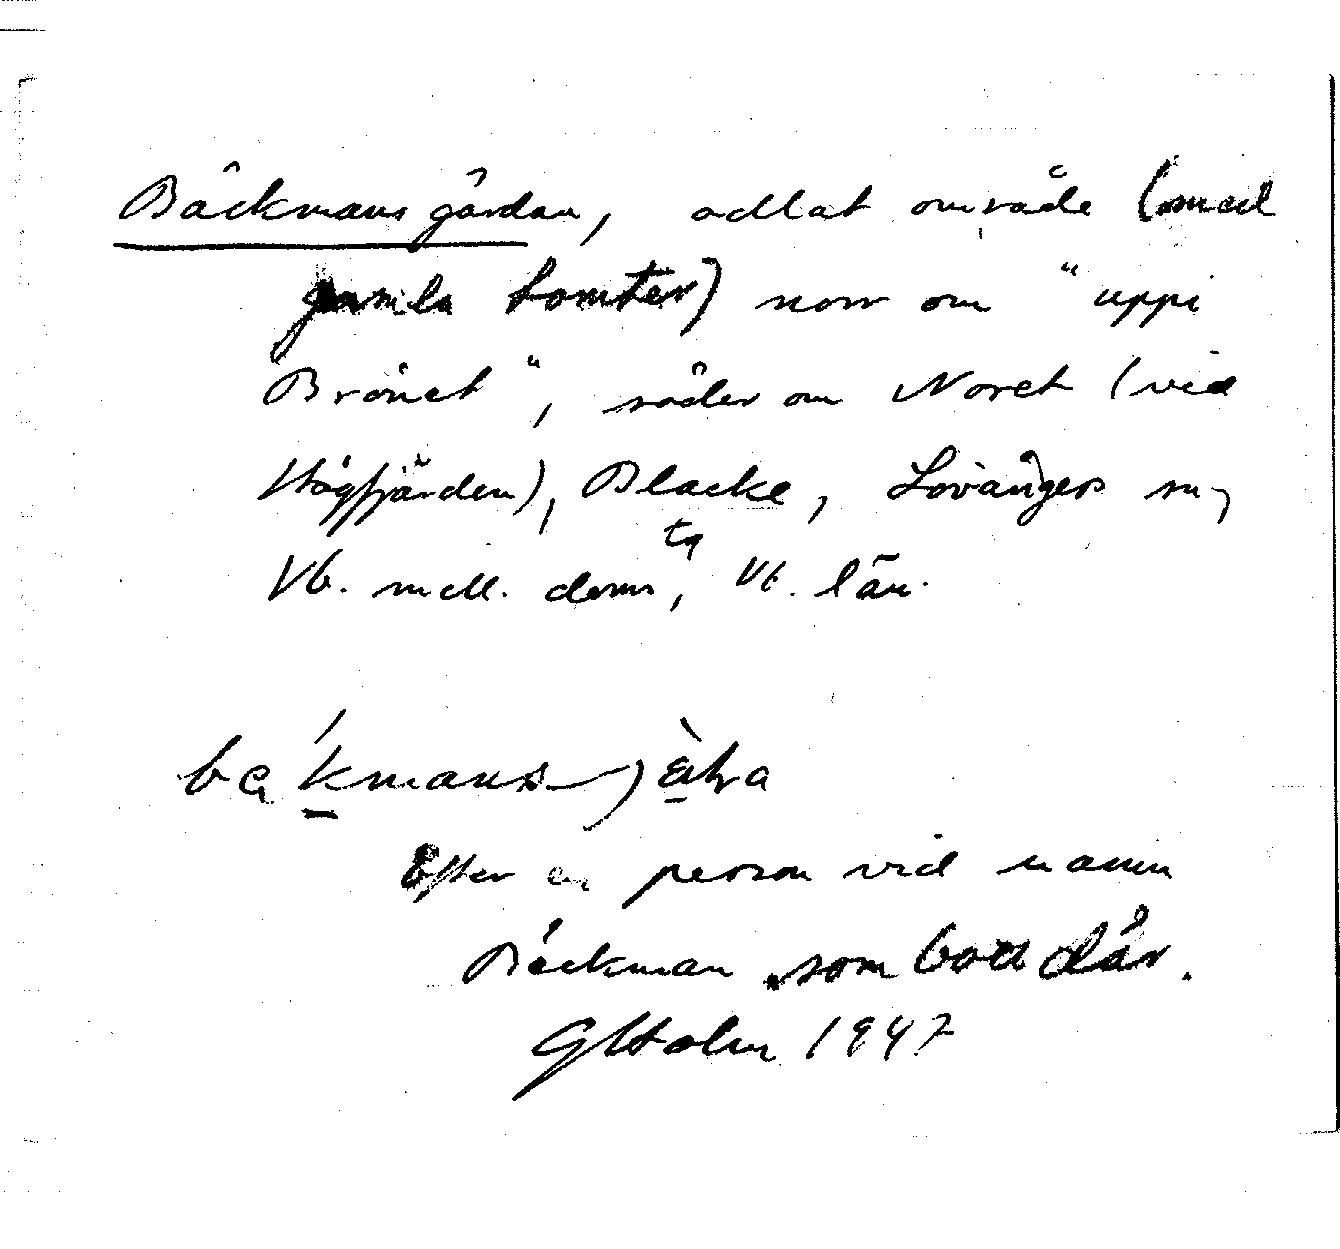 Bäckmansgårdan, odlat område (med
gamla tomter) norr om "uppi
Brånet", söder om Noret (vid
Högfjärden), Blacke, Lövångers sn,
Vb. mell. doms tg, Vb. län.
Efter en person vid namn
Bäckman som bott där.
GHolm 1947